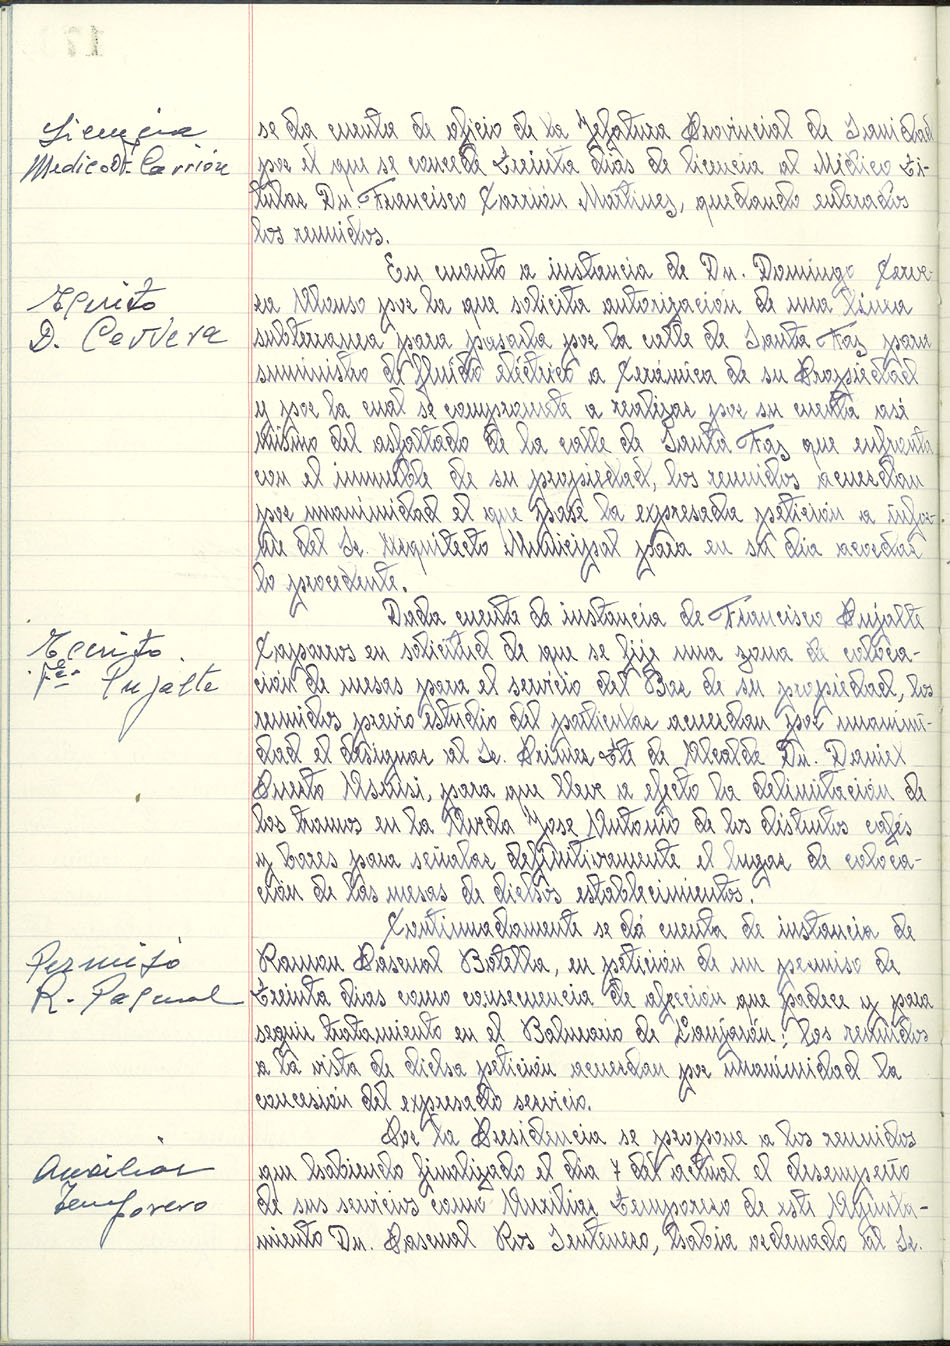 Licencia
Medico Dr. Carrión
se da cuenta de oficio de la Jefatura Provincial de Sanidad
por él que se concede treinta dias de licencia al Médico Ti-
tular Dn. Francisco Carrión Martinez, quedando enterados
los reunidos.
Escrito
D. Cervera
En cuento a instancia de Dn. Domingo Cerve-
ra Alonso por la que solicita autorización de una línea
subterranea para pasarla por la calle de Santa Faz para
suministro de fluido eléctrico a Cerámica de su Propiedad
y por la cual se compromete a realizar por su cuenta asi
mismo del asfaltado de la calle de Santa Faz que enfrenta
con el inmueble de su propiedad, los reunidos acuerdan
por unanimidad el que pase la expresada petición a infor-
me del Sr. Arquitecto Municipal para en su dia acordar
lo procedente.
Escrito
Fco. Pujalte
Dada cuenta de instancia de Francisco Pujalte
Caparros en solicitud de que se fije una zona de coloca-
ción de mesas para el servicio del Bar de su propiedad, los
reunidos previo estudio del particular acuerdan por unanimi-
dad el designar al Sr. Primer Tte de Alcalde Dn. Daniel
Puerto, para que lleve a efecto la delimitación de
los tramos en la Avda Jose Antonio de los distintos cafés
y bares para señalar definitivamente el lugar de coloca-
ción de las mesas de dichos establecimientos.
Permiso
R. Pascual
Continuadamente se dá cuenta de instancia de
Ramon Pascual Botella, en petición de un permiso de
treinta dias como consecuencia de afección que padece y para
seguir tratamiento en el Balneario de Lanjarón; los reunidos
a la vista de dicha petición acuerdan por unanimidad la
concesión del expresado servicio.
Auxiliar
Temporero
Por la Presidencia se propone a los reunidos
que habiendo finalizado el dia 7 del actual el desempeño
de sus servicios como Auxiliar Temporero de este Ayunta-
miento Dn. Pascual Ros Sentenero, habia ordenado al Sr.